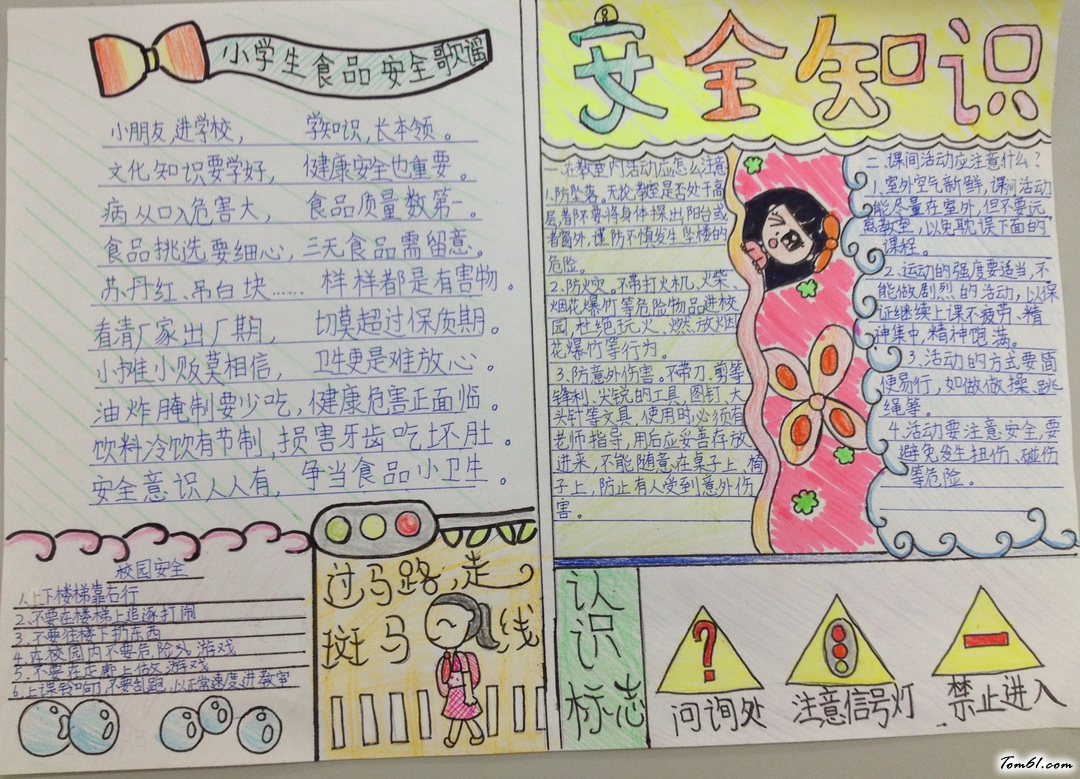 小学生食品安全歌谣
小朋友,进学校, 学知识,长本领。
文化知识要学好, 健康安全也重要。
病从口入危害大, 食品质量数第一。
食品挑选要细心,三无食品需留意。
苏丹红、吊白块…… 样样都是有害物。
看清厂家出厂期, 切莫超过保质期。
小摊小贩莫相信, 卫生更是难放心。
油炸腌制要少吃,健康危害正面临。
饮料冷饮有节制,损害牙齿吃坏肚。
安全意识人人有, 争当食品小卫生。
校园安全
1.上下楼梯靠右行
2.不要在楼梯上追逐打闹
3.不要往楼下扔东西
4.在校园内不要冒险游戏
5.不要在走廊上做游戏
6.上课铃响了,不要乱跑,以正常速度进教室
过马路,走
斑马线
安全知识
一.在教室内活动应怎么注意
1.防坠落。无论教室是否处于高
层,都不要将身体探出阳台或
者窗外,谨防不慎发生坠楼的
危险。
2.防火灾。不带打火机、火柴、
烟花爆竹等危险物品进校
园,杜绝玩火、燃放烟
花爆竹等行为。
3.防意外伤害。不带刀、剪等
锋利、尖锐的工具,图钉、大
头针等文具,使用时必须有
老师指导,用后应妥善存放
进来,不能随意在桌子上、椅
子上,防止有人受到意外伤
害。
二.课间活动应注意什么?
1.室外空气新鲜,课间活动
能尽量在室外,但不要远
离教室,以免耽误下面的
课程。
2.运动的强度要适当,不
能做剧烈的活动,以保
证继续上课不疲劳、精
神集中,精神饱满。
3.活动的方式要简
便易行,如做做操、跳
绳等。
4.活动要注意安全,要
避免发生扭伤、碰伤
等危险。
认识标志
?
问询处
注意信号灯
禁止进入
Tom61.com